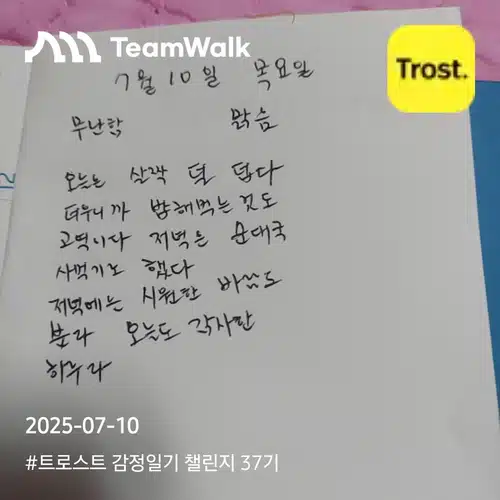 TeamWalk
Trost.
7월 10일 목요일
무난함 맑음
오늘은 살짝 덜 덥다
더우니까 밥해먹는 것도
고역이다 저녁은 순대국
사먹기로 했다
저녁에는 시원한 바람도
분다 오늘도 감사한
하루다
2025-07-10
#트로스트 감정일기 챌린지 37기